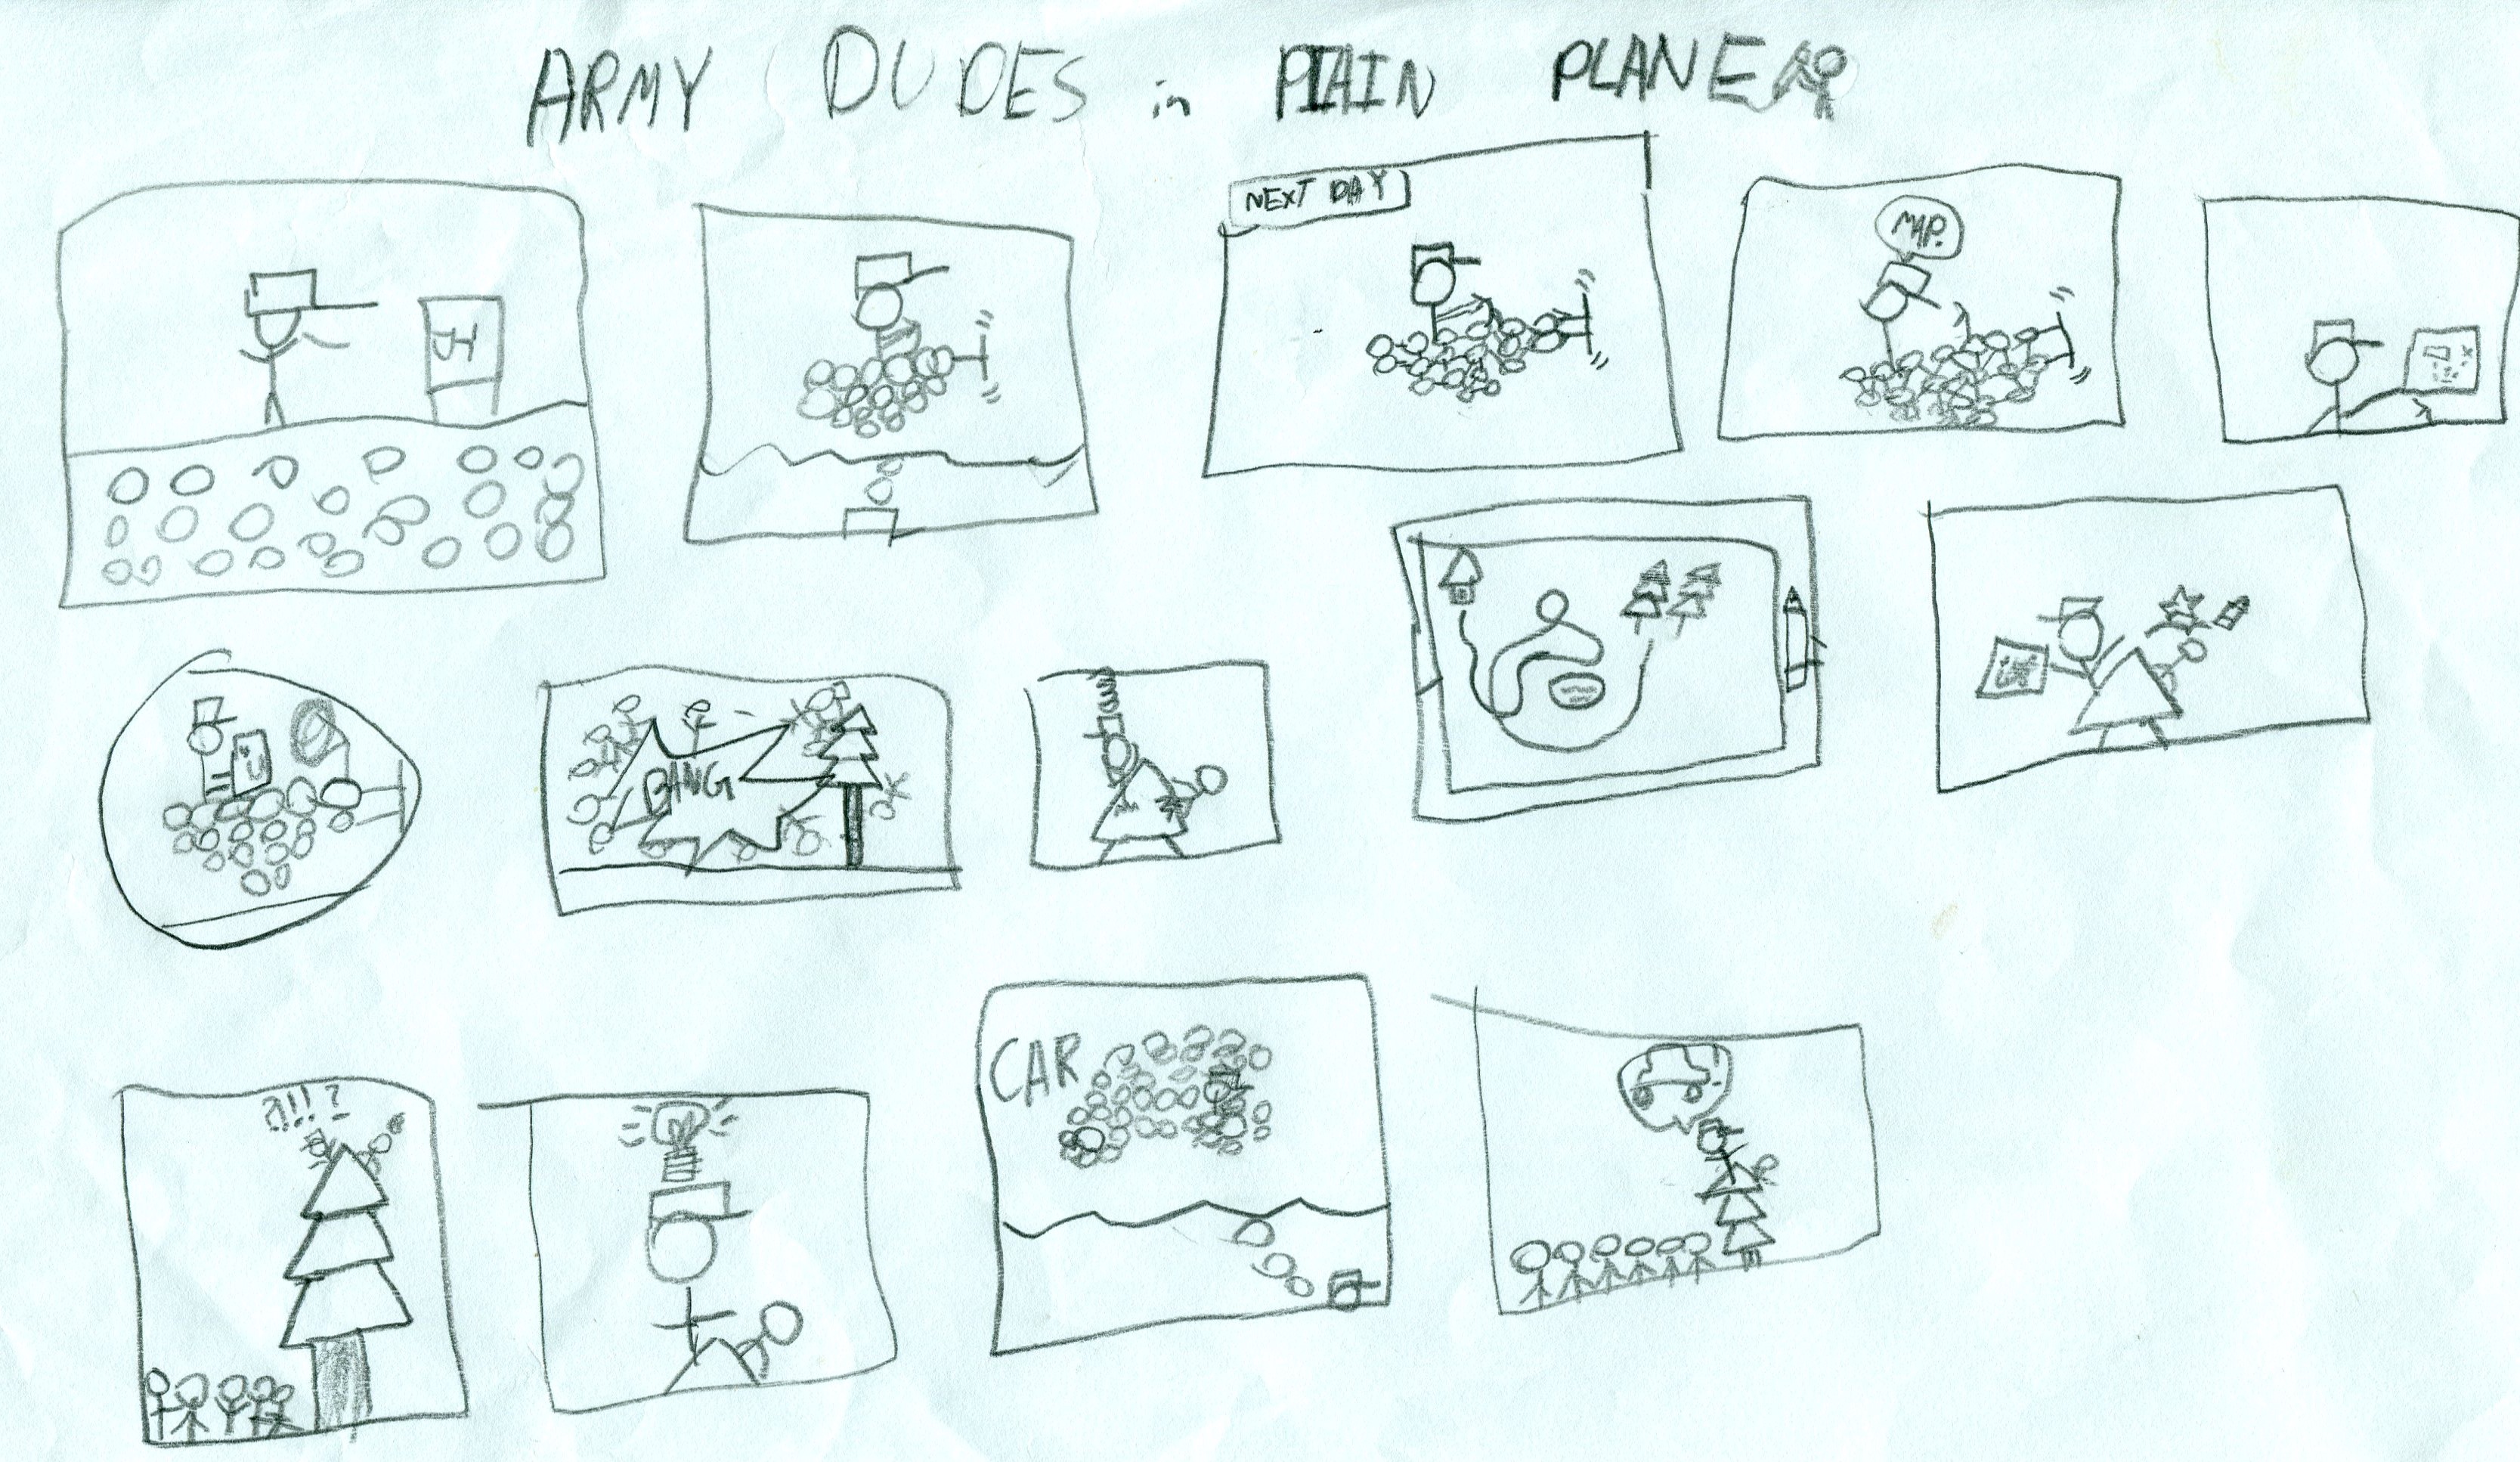 ARMY DUDES in PLAIN PLANE
NEXT DAY
MAP.
BANG
?!!?
CAR